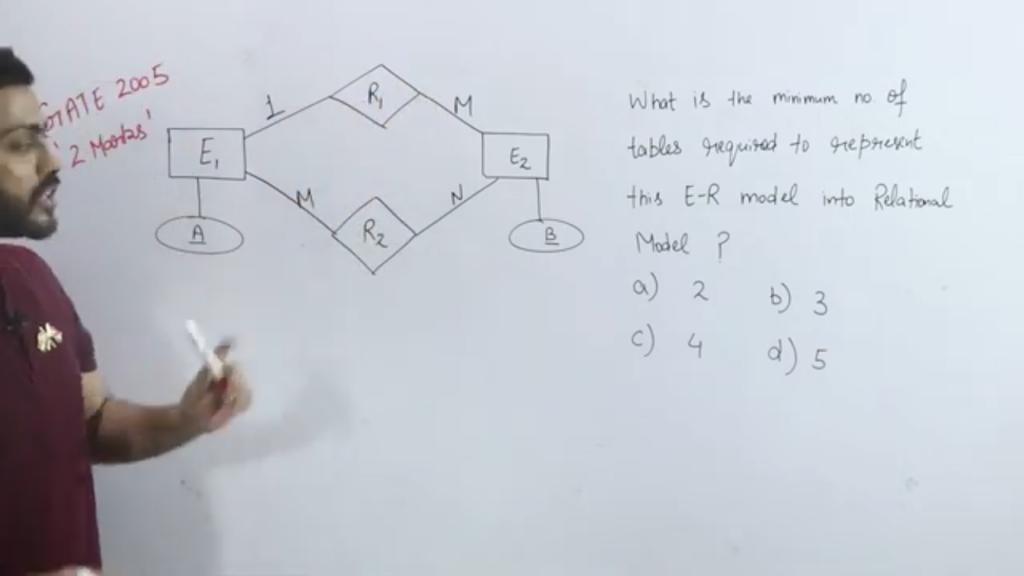 GATE 2005
'2 Marks'
1
R₁
M
E₁
E₂
M
N
R₂
A
B
What is the minimum no. of
tables required to represent
this E-R model into Relational
Model ?
a) 2 b) 3
c) 4 d) 5